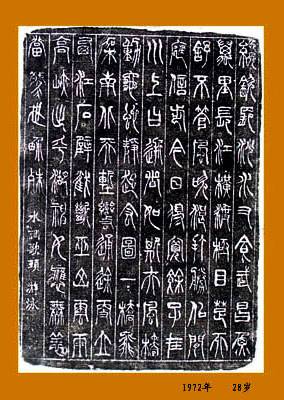 纔飲長沙水又食武昌魚
萬里長江橫渡極目楚天
舒不管風吹浪打勝似閒
庭信步今日得寬餘子在
川上曰逝者如斯夫風檣
動龜蛇靜起宏圖一橋飛
架南北天塹變通途更立
西江石壁截斷巫山雲雨
高峽出平湖神女應無恙
當驚世界殊 水調歌頭 游泳
1972年 28岁